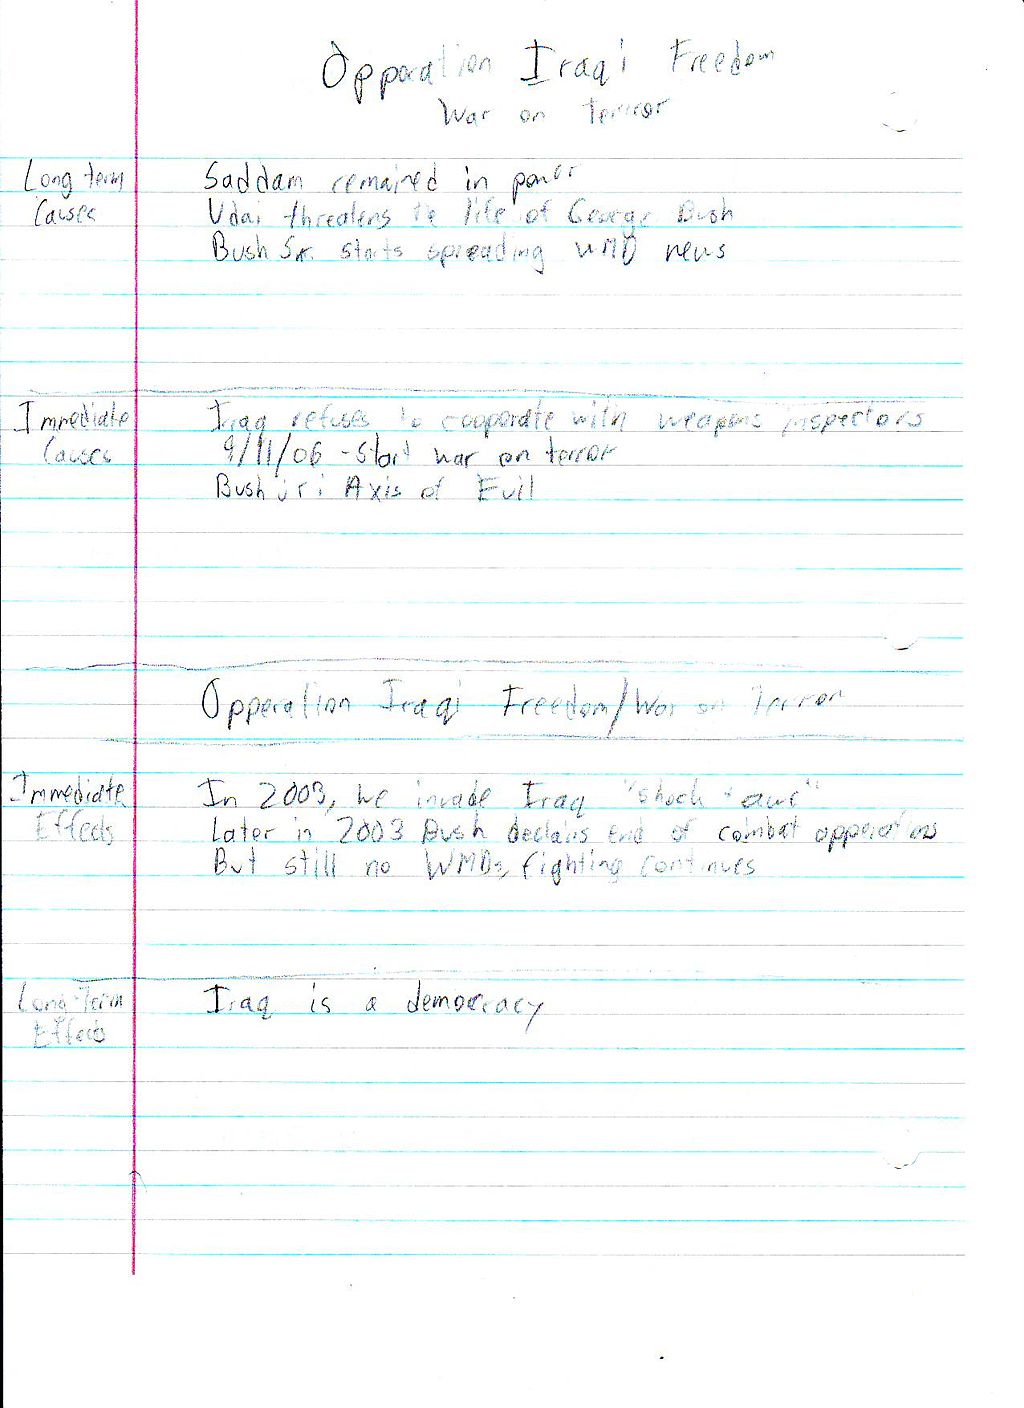 Opparation Iraqi Freedom
War on Terror
Long term Saddam remained in power
Causes Udai threatens the life of George Bush
Bush Sr. starts spreading WMD news
Immediate Iraq refuses to cooperate with weapons inspectors
Causes 9/11/06 - Start war on terror
Bush jr: Axis of Evil
Opperation Iraqi Freedom/War on Terror
Immediate In 2003, we invade Iraq "shock + awe"
Effects Later in 2003 Bush declairs End of combat opperations
But still no WMDs, fighting continues
Long-Term Iraq is a democracy
Effects